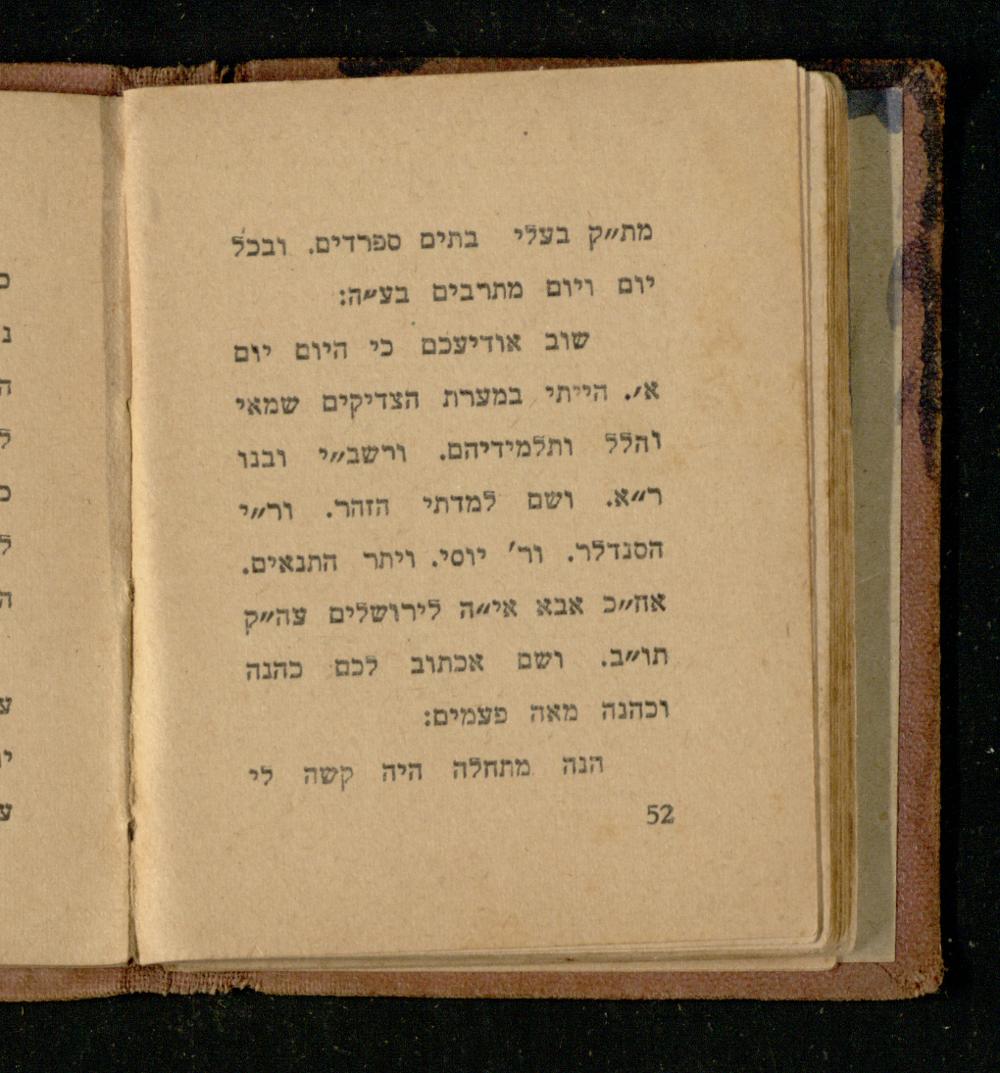 מת״ק בעלי בתים ספרדים. ובכל
יום ויום מתרבים בע״ה:
שוב אודיעכם כי היום יום
א׳. הייתי במערת הצדיקים שמאי
והלל ותלמידיהם. ורשב״י ובנו
ר״א. ושם למדתי הזהר. ור״י
הסנדלר. ור׳ יוסי. ויתר התנאים.
אח״כ אבא אי״ה לירושלים עה״ק
תו״ב. ושם אכתוב לכם כהנה
וכהנה מאה פעמים:
הנה מתחלה היה קשה לי
52